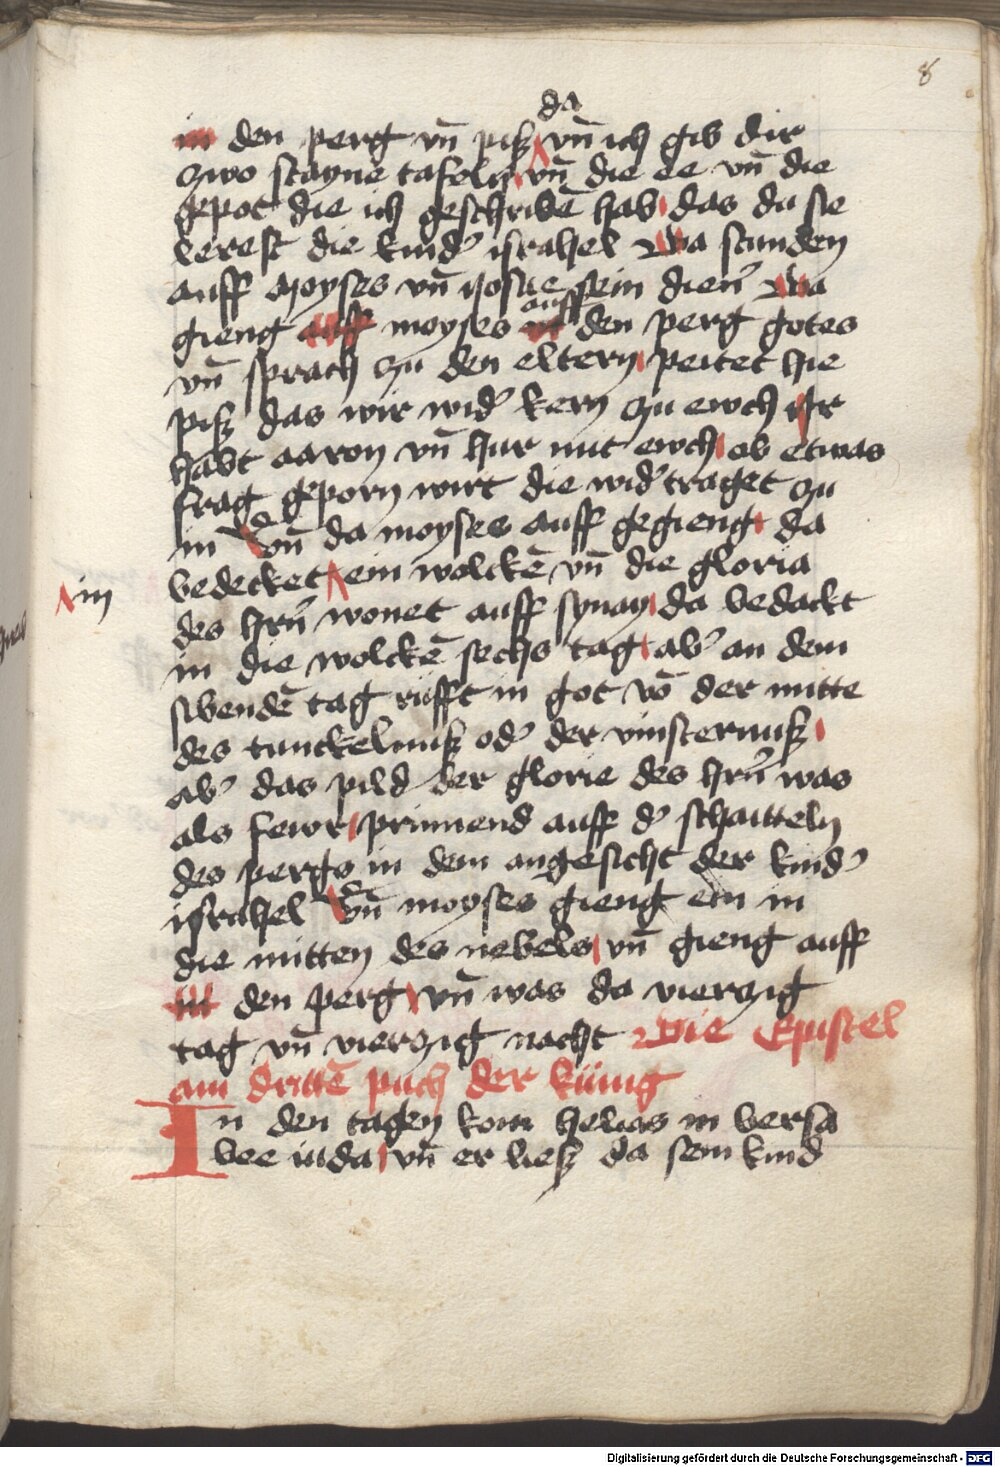 8
da
in den perg vn̄ piß vn̄ ich gib dir
zwo stayne tafeln vn̄ die ee vn̄ die
gepot die ich geschribē hab das du sie
lerest die kind' israhel Da stunden
auff Moyses vn̄ yosue sein dien' Da
auff
gieng auff moyses in den perg gotes
vn̄ sprach zu den eltern peitet hie
piß das wir wid' kern zu ewch Ir
habt aaron vn̄ hur mit ewch ob etwas
frag geporn wirt die wid' traget zu
in Vn̄ da moyses auff gegieng da
bedecket ein wolckē vn̄ die gloria
in
des hr̄n wonet auff synay da bedackt
in die wolckē sechs tag ab' an dem
sibendē tag rüfft in got vō der mitte
des tunckelnuß od' der vinsternuß
ab' das pild der glorie des hr̄n was
als fewr prinnend auff d' schaitteln
des pergs in dem angesicht der kind'
israhel Vn̄ moyses gieng ein in
die mitten des nebels vn̄ gieng auff
in den perg vn̄ was da vierzig
tag vn̄ vierzig nacht Die Epistel
am drittē puch der künig
In den tagen kom helias in bersa
bee iuda vn̄ er ließ da sein kind
Digitalisierung gefördert durch die Deutsche Forschungsgemeinschaft - DFG